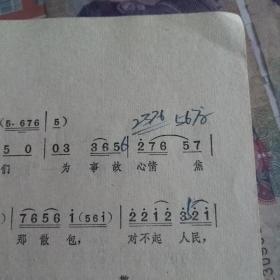 (5.676 | 5)
2376 567
5 0 | 03 365 | 276 57
们 为 事故 心情 焦
7656 i(56i) | 2212 321
郑 散 包, 对不起 人民,